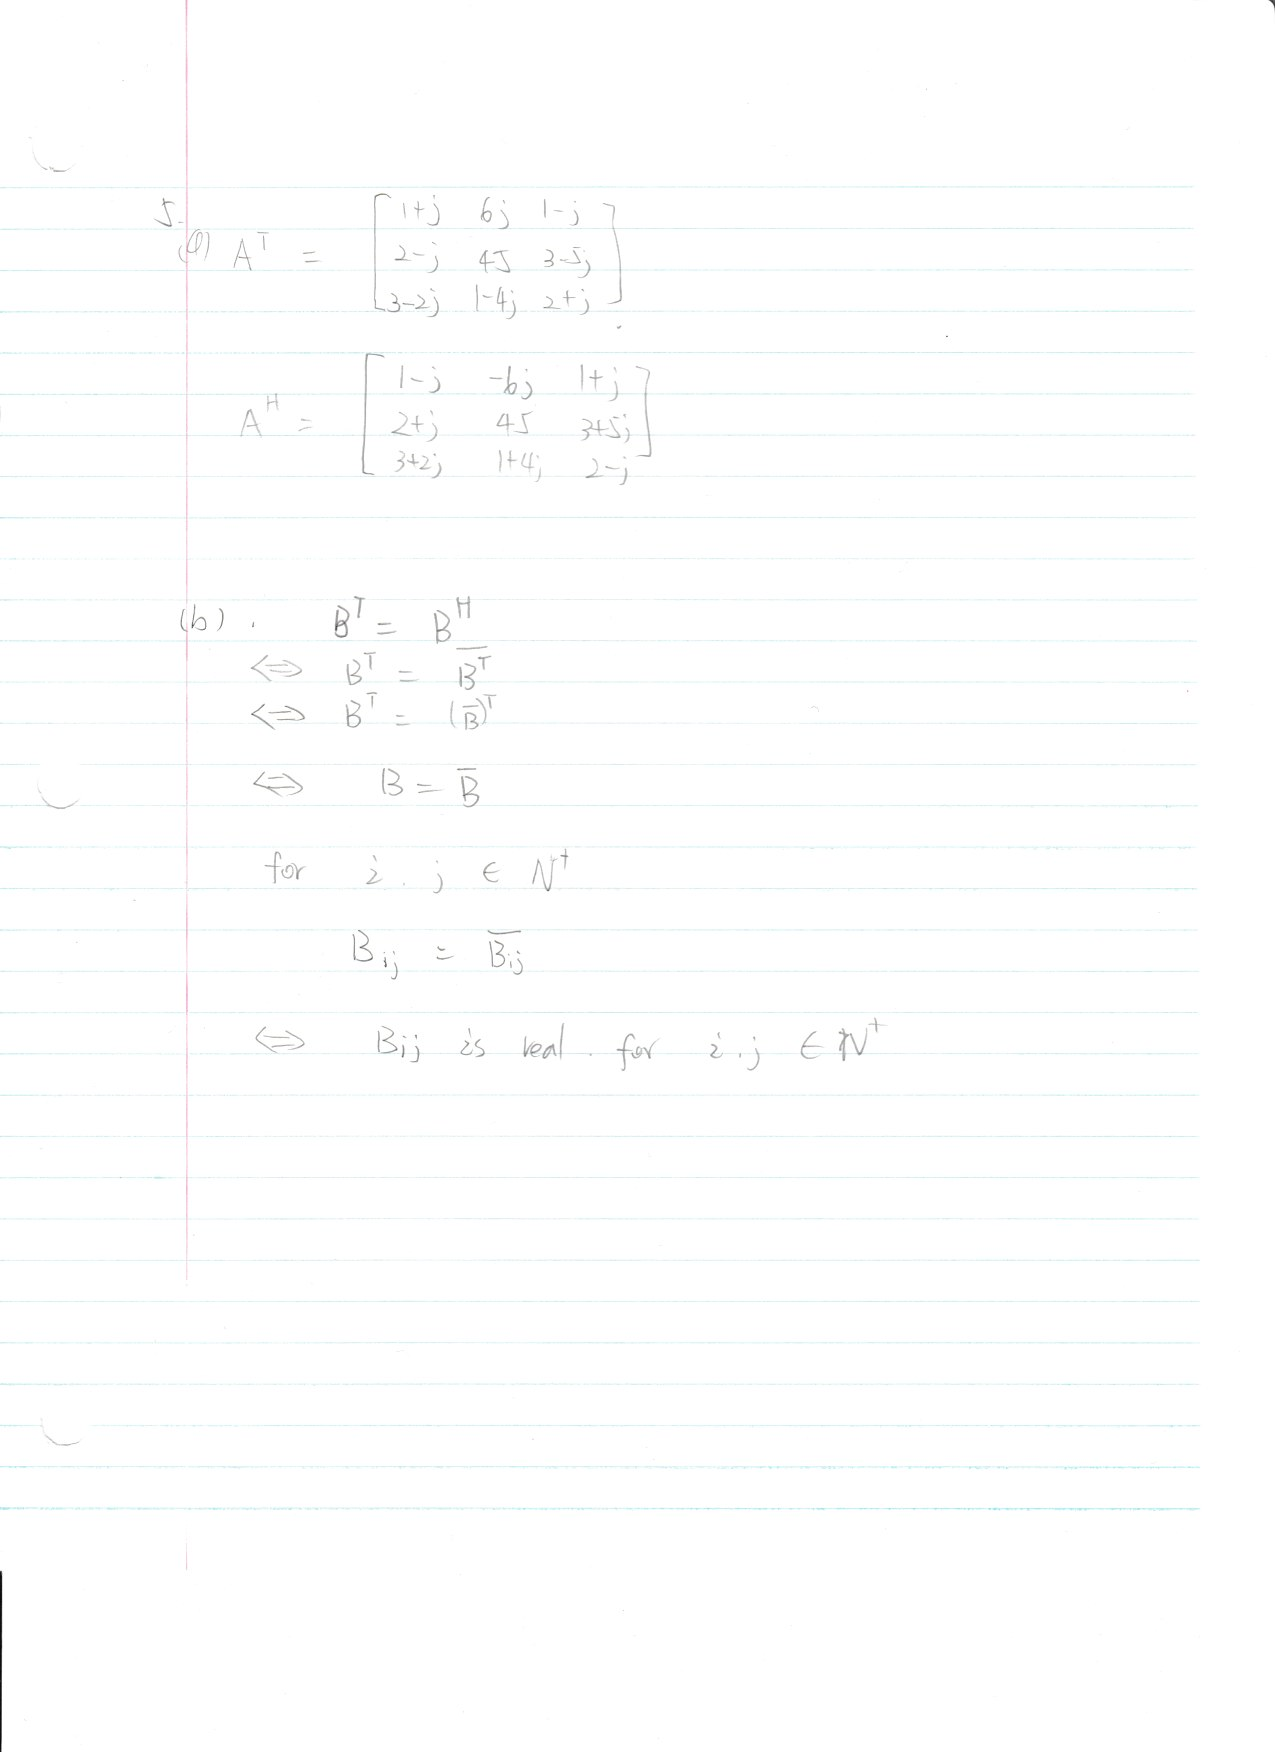 5.
(a) Aᵀ = [ 1+j 6j 1-j
2-j 45 3-5j
3-2j 1-4j 2+j ]
Aᴴ = [ 1-j -6j 1+j
2+j 45 3+5j
3+2j 1+4j 2-j ]
(b). Bᵀ = Bᴴ
⇔ Bᵀ = B̅ᵀ̅
⇔ Bᵀ = (B̅)ᵀ
⇔ B = B̅
for i, j ∈ N⁺
Bij = B̅i̅j̅
⇔ Bij is real. for i, j ∈ N⁺